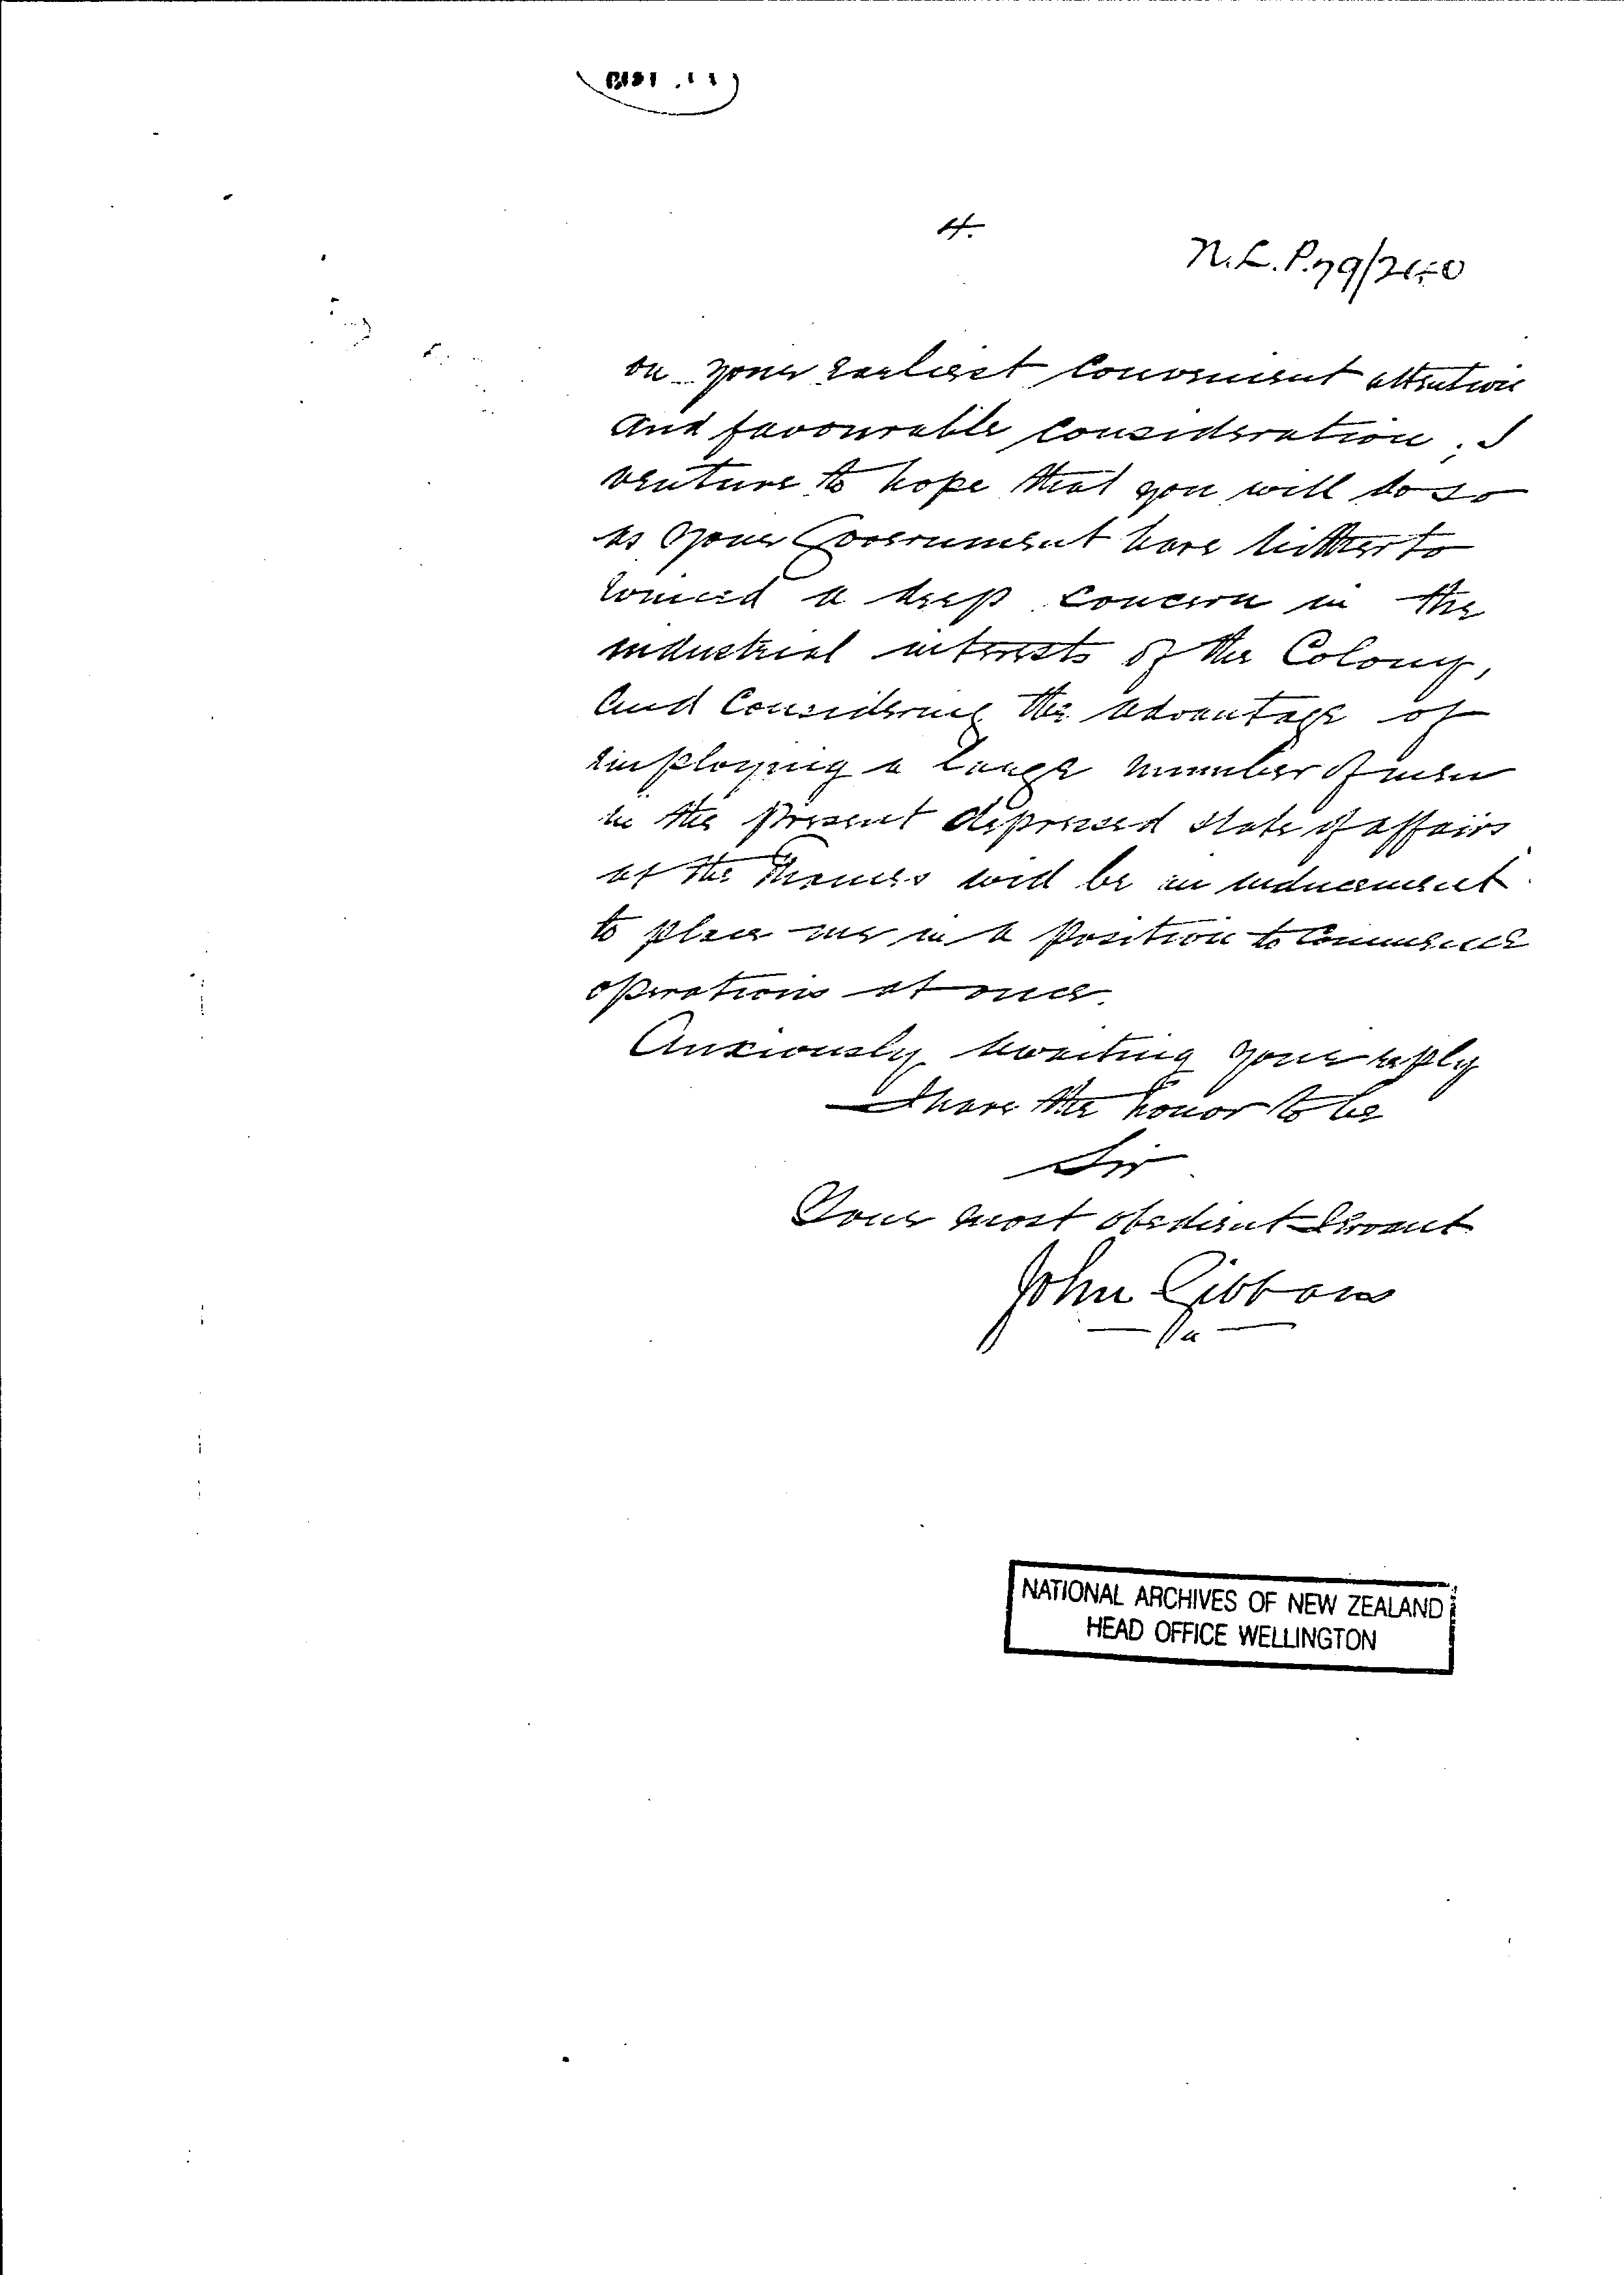 4.
N.L.P.79/2
on your earliest convenient attention
and favourable consideration. I
venture to hope that you will do so
as your Government have hitherto
evinced a deep concern in the
industrial interests of the Colony,
and Considering the advantage of
employing a large number of men
in the present depressed state of affairs
at the Thames will be an inducement
to place me in a position to Commence
operations at once.
Anxiously awaiting your reply
I have the honor to be
Sir
Your most obedient Servant
John Gibbons
NATIONAL ARCHIVES OF NEW ZEALAND
HEAD OFFICE WELLINGTON